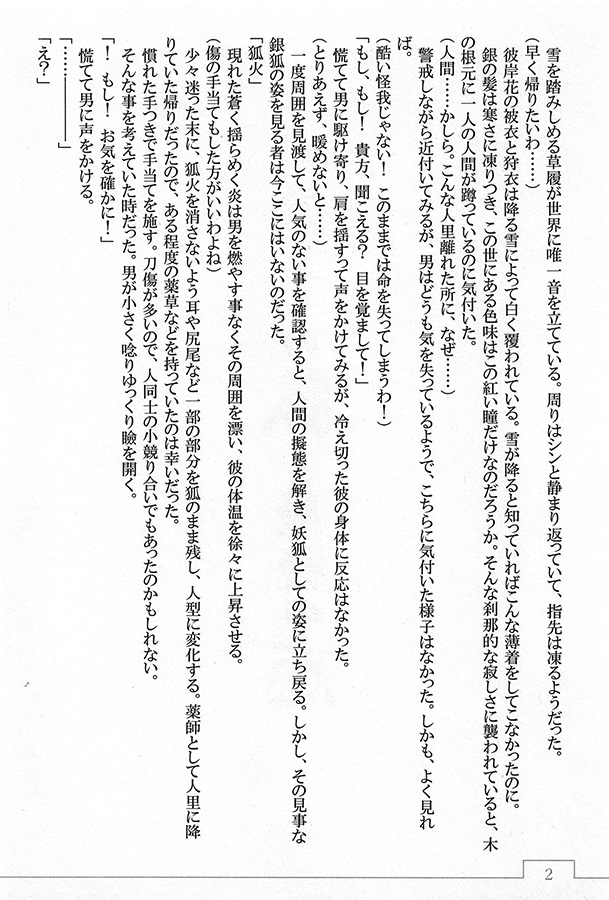 雪を踏みしめる草履が世界に唯一音を立てている。周りはシンと静まり返っていて、指先は凍るようだった。
（早く帰りたいわ……）
彼岸花の被衣と狩衣は降る雪によって白く覆われている。雪が降ると知っていればこんな薄着をしてこなかったのに。
銀の髪は寒さに凍りつき、この世にある色味はこの紅い瞳だけなのだろうか。そんな刹那的な寂しさに襲われていると、木
の根元に一人の人間が蹲っているのに気付いた。
（人間……かしら。こんな人里離れた所に、なぜ……）
警戒しながら近付いてみるが、男はどうも気を失っているようで、こちらに気付いた様子はなかった。しかも、よく見れ
ば。
（酷い怪我じゃない！　このままでは命を失ってしまうわ！）
「もし、もし！　貴方、聞こえる？　目を覚まして！」
慌てて男に駆け寄り、肩を揺すって声をかけてみるが、冷え切った彼の身体に反応はなかった。
（とりあえず、暖めないと……）
一度周囲を見渡して、人気のない事を確認すると、人間の擬態を解き、妖狐としての姿に立ち戻る。しかし、その見事な
銀狐の姿を見る者は今ここにはいないのだった。
「狐火」
現れた蒼く揺らめく炎は男を燃やす事なくその周囲を漂い、彼の体温を徐々に上昇させる。
（傷の手当てもした方がいいわよね）
少々迷った末に、狐火を消さないよう耳や尻尾など一部の部分を狐のまま残し、人型に変化する。薬師として人里に降
りていた帰りだったので、ある程度の薬草などを持っていたのは幸いだった。
慣れた手つきで手当てを施す。刀傷が多いので、人同士の小競り合いでもあったのかもしれない。
そんな事を考えていた時だった。男が小さく唸りゆっくり瞼を開く。
「！　もし！　お気を確かに！」
慌てて男に声をかける。
「…………――」
「え？」
2